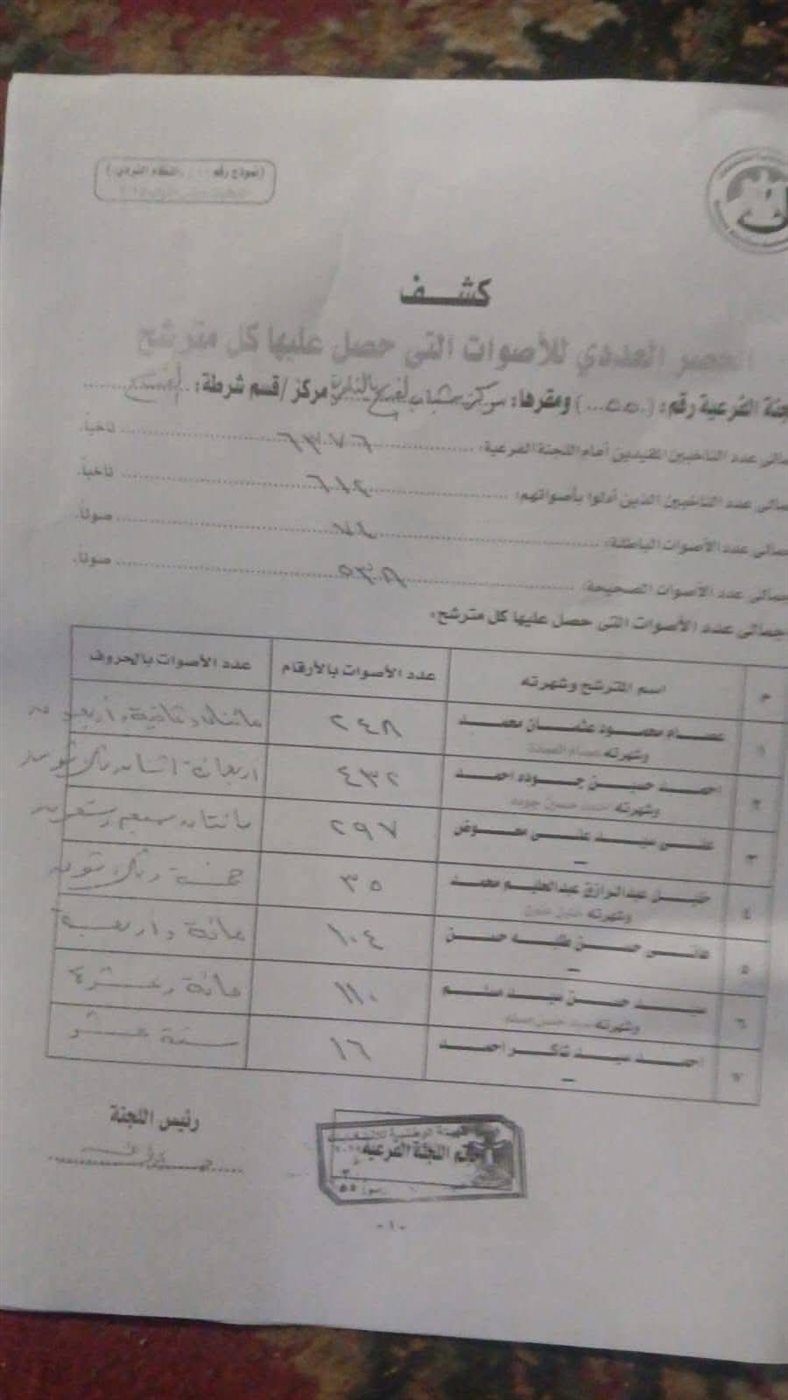 (نموذج رقم النظام الفردي)
كشف
الحصر العددي للأصوات التى حصل عليها كل مترشح
جنة الفرعية رقم: (..٥٥...) ومقرها: مركز شباب مركز /قسم شرطة:
مالى عدد الناخبين المقيدين أمام اللجنة الفرعية: ناخباً.
مالى عدد الناخبين الذين أدلوا بأصواتهم: ٦١٤ ناخباً.
مالى عدد الأصوات الباطلة: صوتاً.
جمالى عدد الأصوات الصحيحة: ٥٣٨ صوتاً.
جمالى عدد الأصوات التى حصل عليها كل مترشح:
م اسم المترشح وشهرته عدد الأصوات بالأرقام عدد الأصوات بالحروف
١ عصام محمود عثمان محمد ٢٤٨ مائتان وثمانية وأربعون
وشهرته عصام العمدة
٢ احمد حسين جوده احمد ٤٣٢ أربعمائة اثنان وثلاثون
وشهرته احمد حسين جوده
٣ على سيد على معوض ٢٩٧ مائتان سبعة وتسعون
–
٤ خليل عبدالرازق عبدالعليم محمد ٣٥ خمسة وثلاثون
وشهرته خليل
٥ هانى حسن طلبه حسن ١٠٤ مائة وأربعة
–
٦ سيد حسن سيد مسلم ١١٠ مائة وعشرة
وشهرته سيد حسن مسلم
٧ احمد سيد شاكر احمد ١٦ ستة عشر
–
رئيس اللجنة
الهيئة الوطنية للانتخابات
خاتم اللجنة الفرعية
٥٥
-١٠-